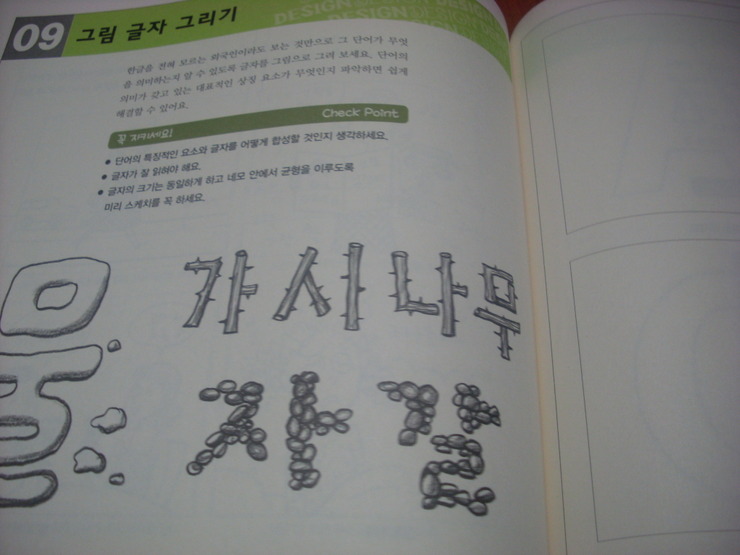 09 그림 글자 그리기
DESIGN
DESIGN
한글을 전혀 모르는 외국인이라도 보는 것만으로 그 단어가 무엇
을 의미하는지 알 수 있도록 글자를 그림으로 그려 보세요. 단어의
의미가 갖고 있는 대표적인 상징 요소가 무엇인지 파악하면 쉽게
해결할 수 있어요.
꼭 지키세요! Check Point
● 단어의 특징적인 요소와 글자를 어떻게 합성할 것인지 생각하세요.
● 글자가 잘 읽혀야 해요.
● 글자의 크기는 동일하게 하고 네모 안에서 균형을 이루도록
미리 스케치를 꼭 하세요.
가시나무
자갈